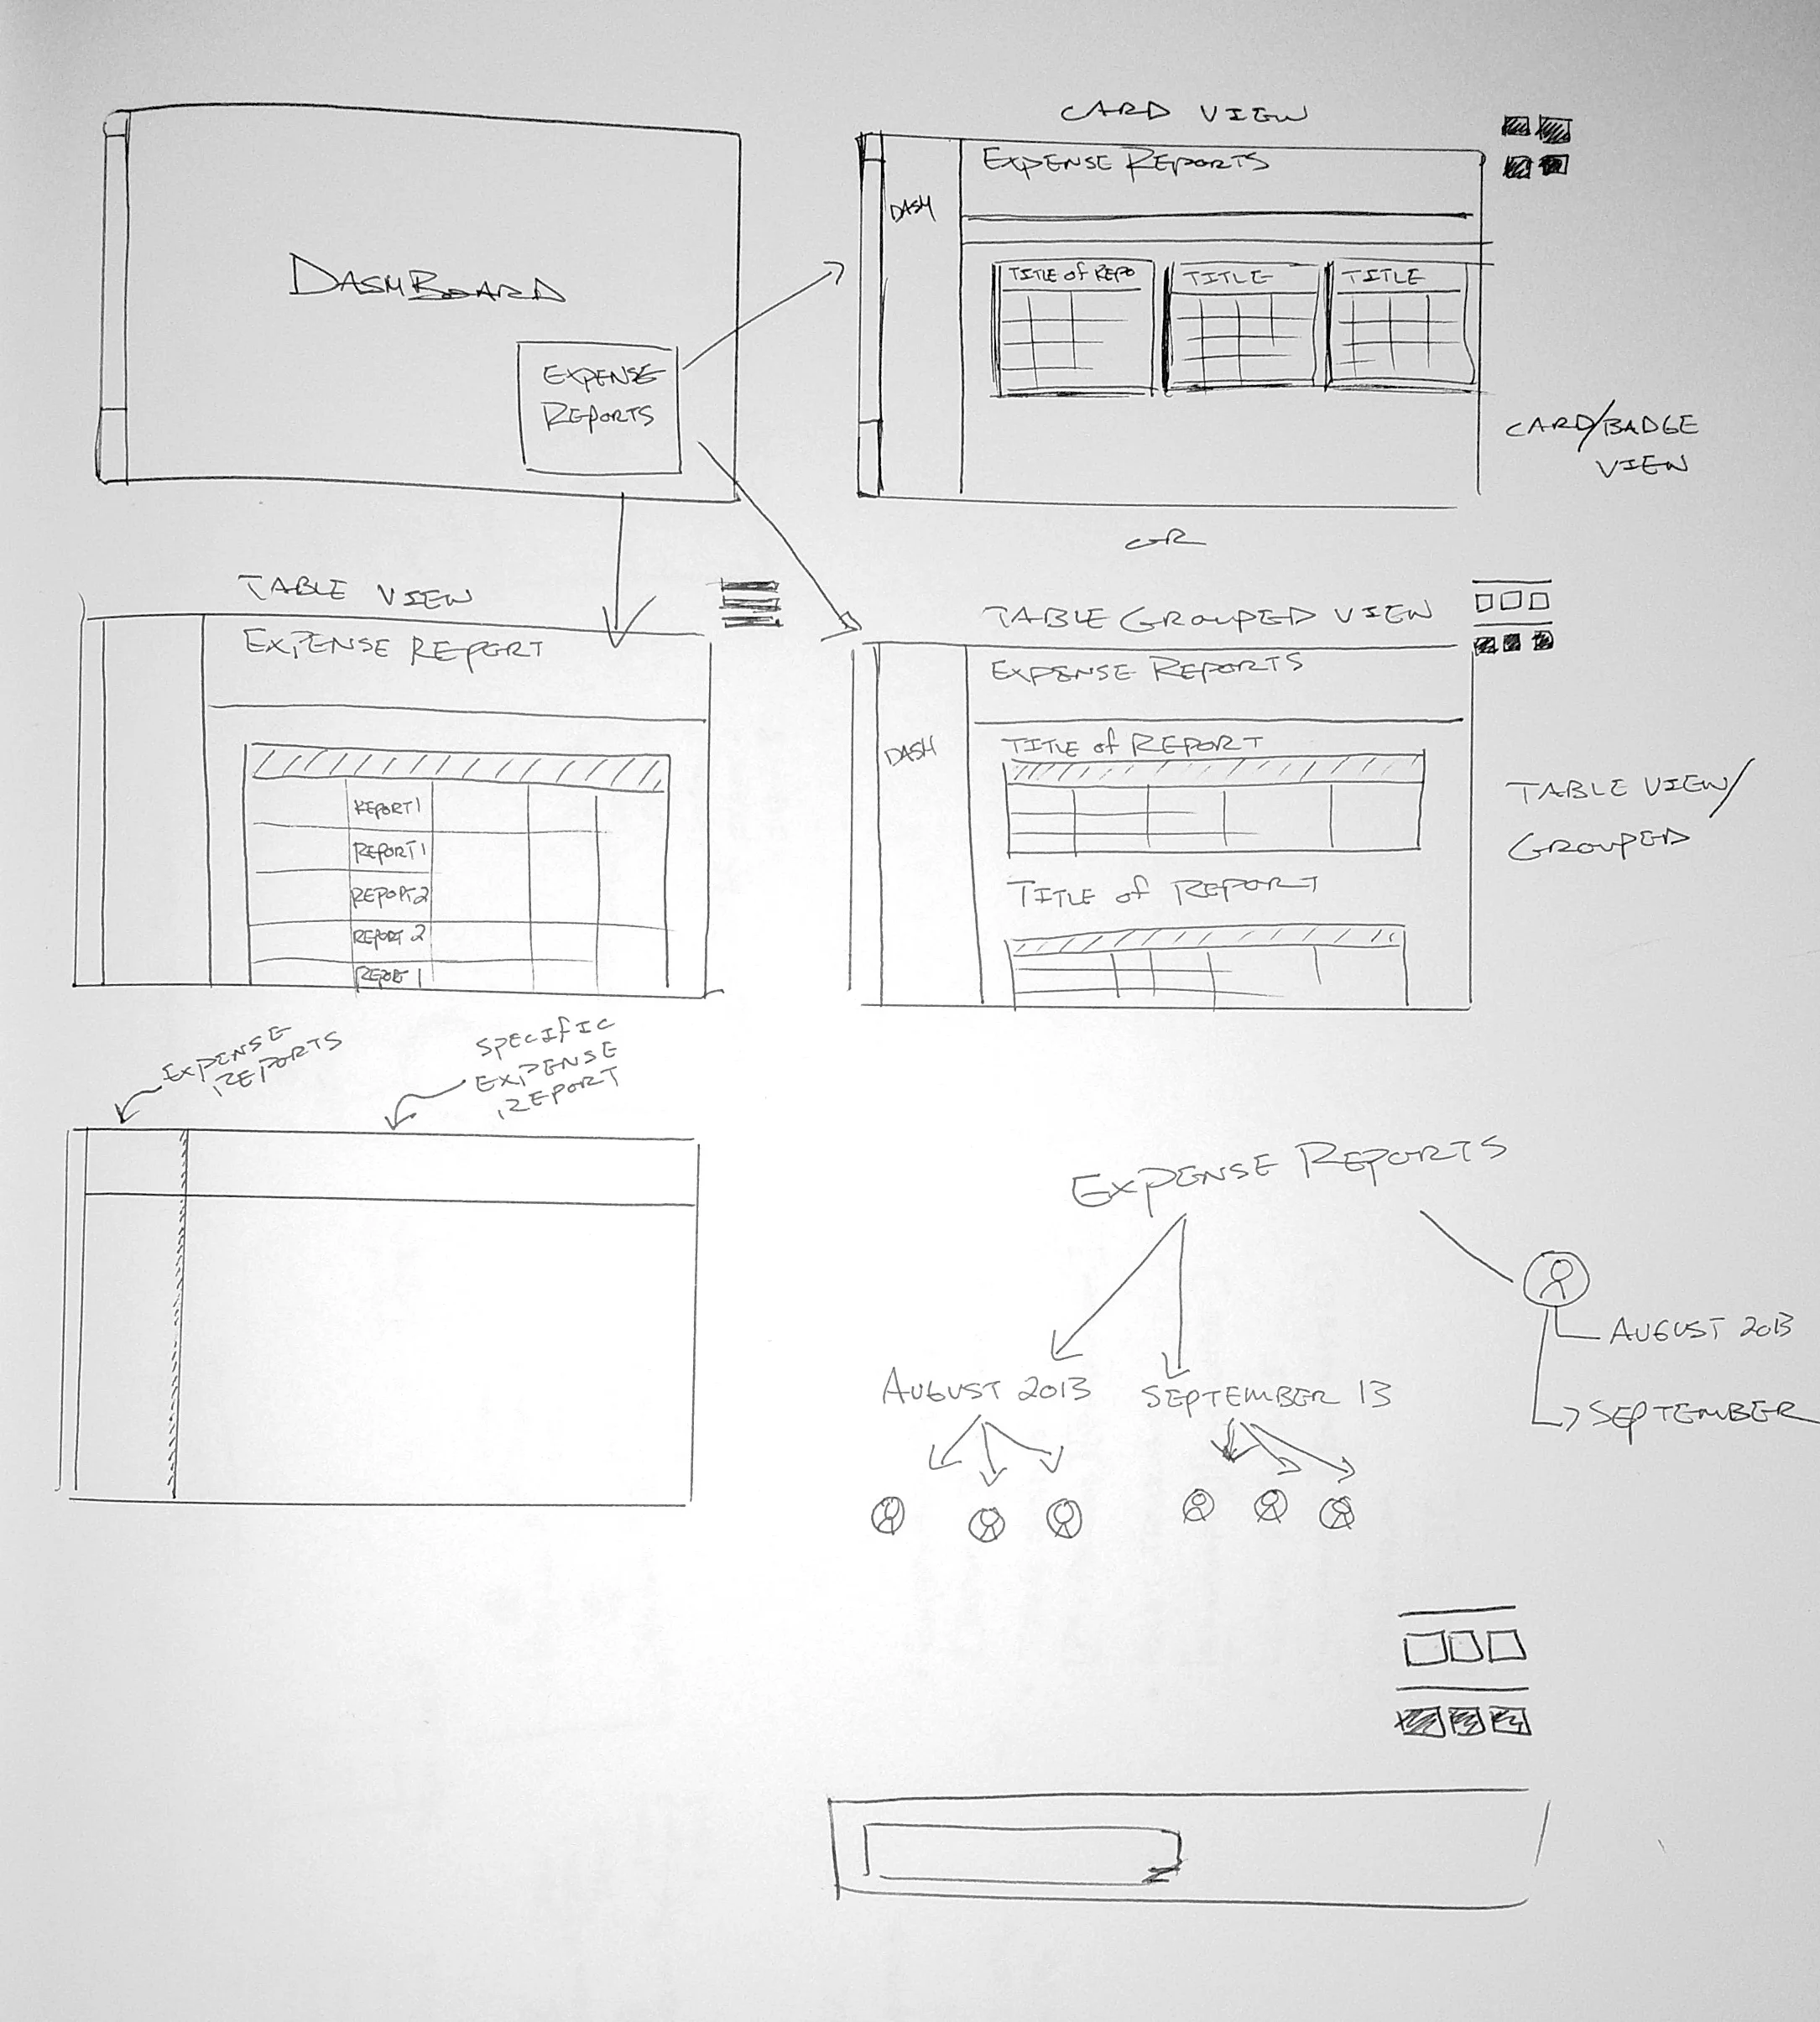 DASHBOARD
EXPENSE
REPORTS
CARD VIEW
EXPENSE REPORTS
DASH
TITLE of REPO
TITLE
TITLE
CARD/BADGE
VIEW
OR
TABLE VIEW
EXPENSE REPORT
REPORT 1
REPORT 1
REPORT 2
REPORT 2
REPORT 1
TABLE GROUPED VIEW
EXPENSE REPORTS
DASH
TITLE of REPORT
TITLE of REPORT
TABLE VIEW/
GROUPED
EXPENSE
REPORTS
SPECIFIC
EXPENSE
REPORT
EXPENSE REPORTS
AUGUST 2013
SEPTEMBER 13
AUGUST 2013
SEPTEMBER